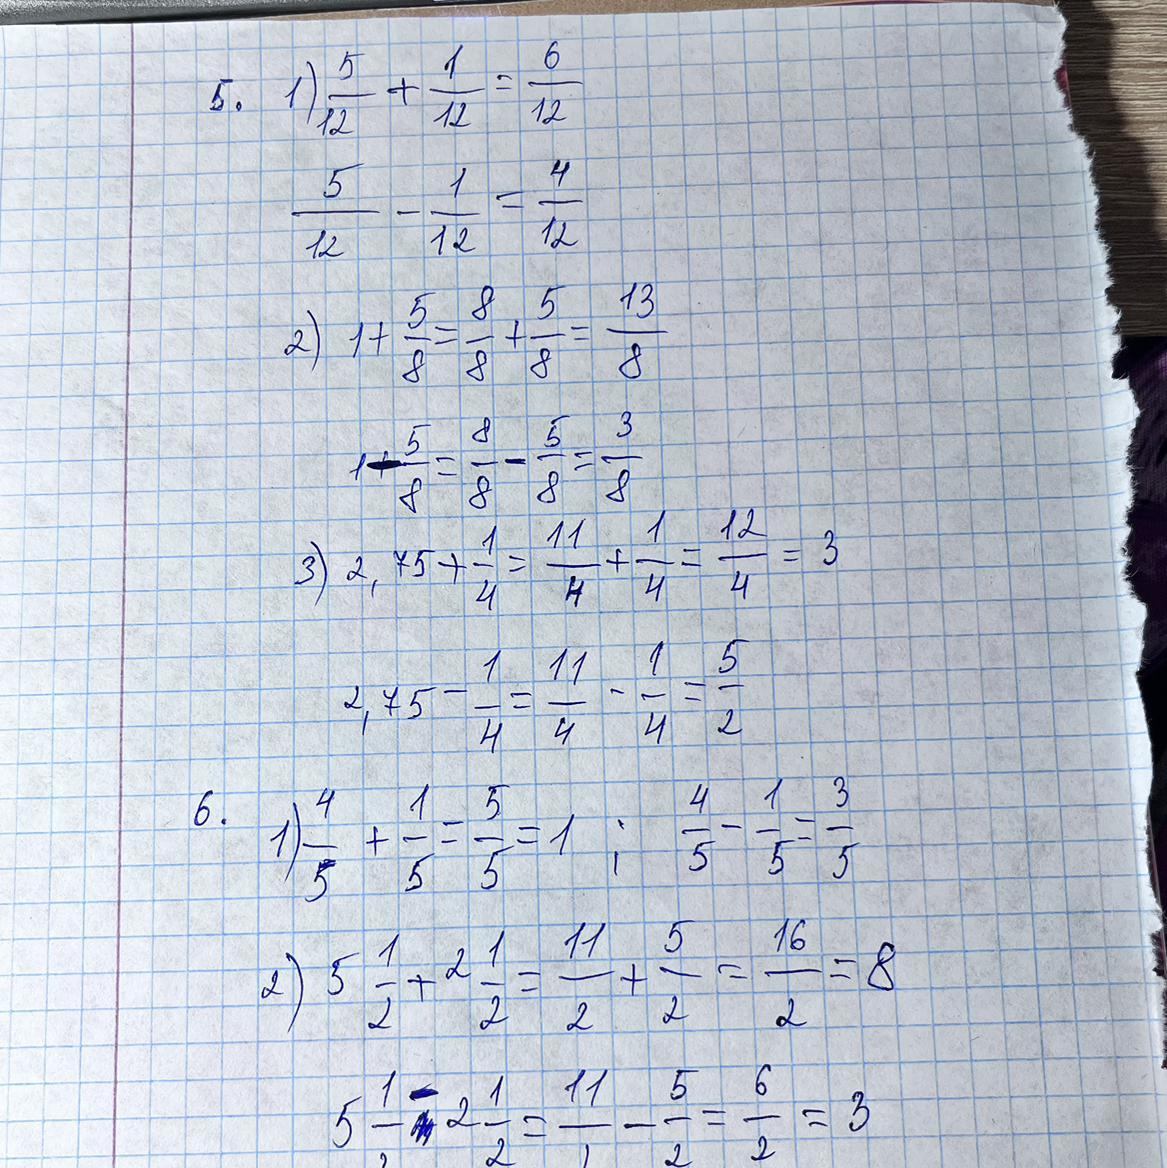 5. 1) 5/12 + 1/12 = 6/12
5/12 - 1/12 = 4/12
2) 1 + 5/8 = 8/8 + 5/8 = 13/8
1 - 5/8 = 8/8 - 5/8 = 3/8
3) 2,75 + 1/4 = 11/4 + 1/4 = 12/4 = 3
2,75 - 1/4 = 11/4 - 1/4 = 5/2
6. 1) 4/5 + 1/5 = 5/5 = 1 ; 4/5 - 1/5 = 3/5
2) 5 1/2 + 2 1/2 = 11/2 + 5/2 = 16/2 = 8
5 1/2 - 2 1/2 = 11/ - 5/2 = 6/2 = 3